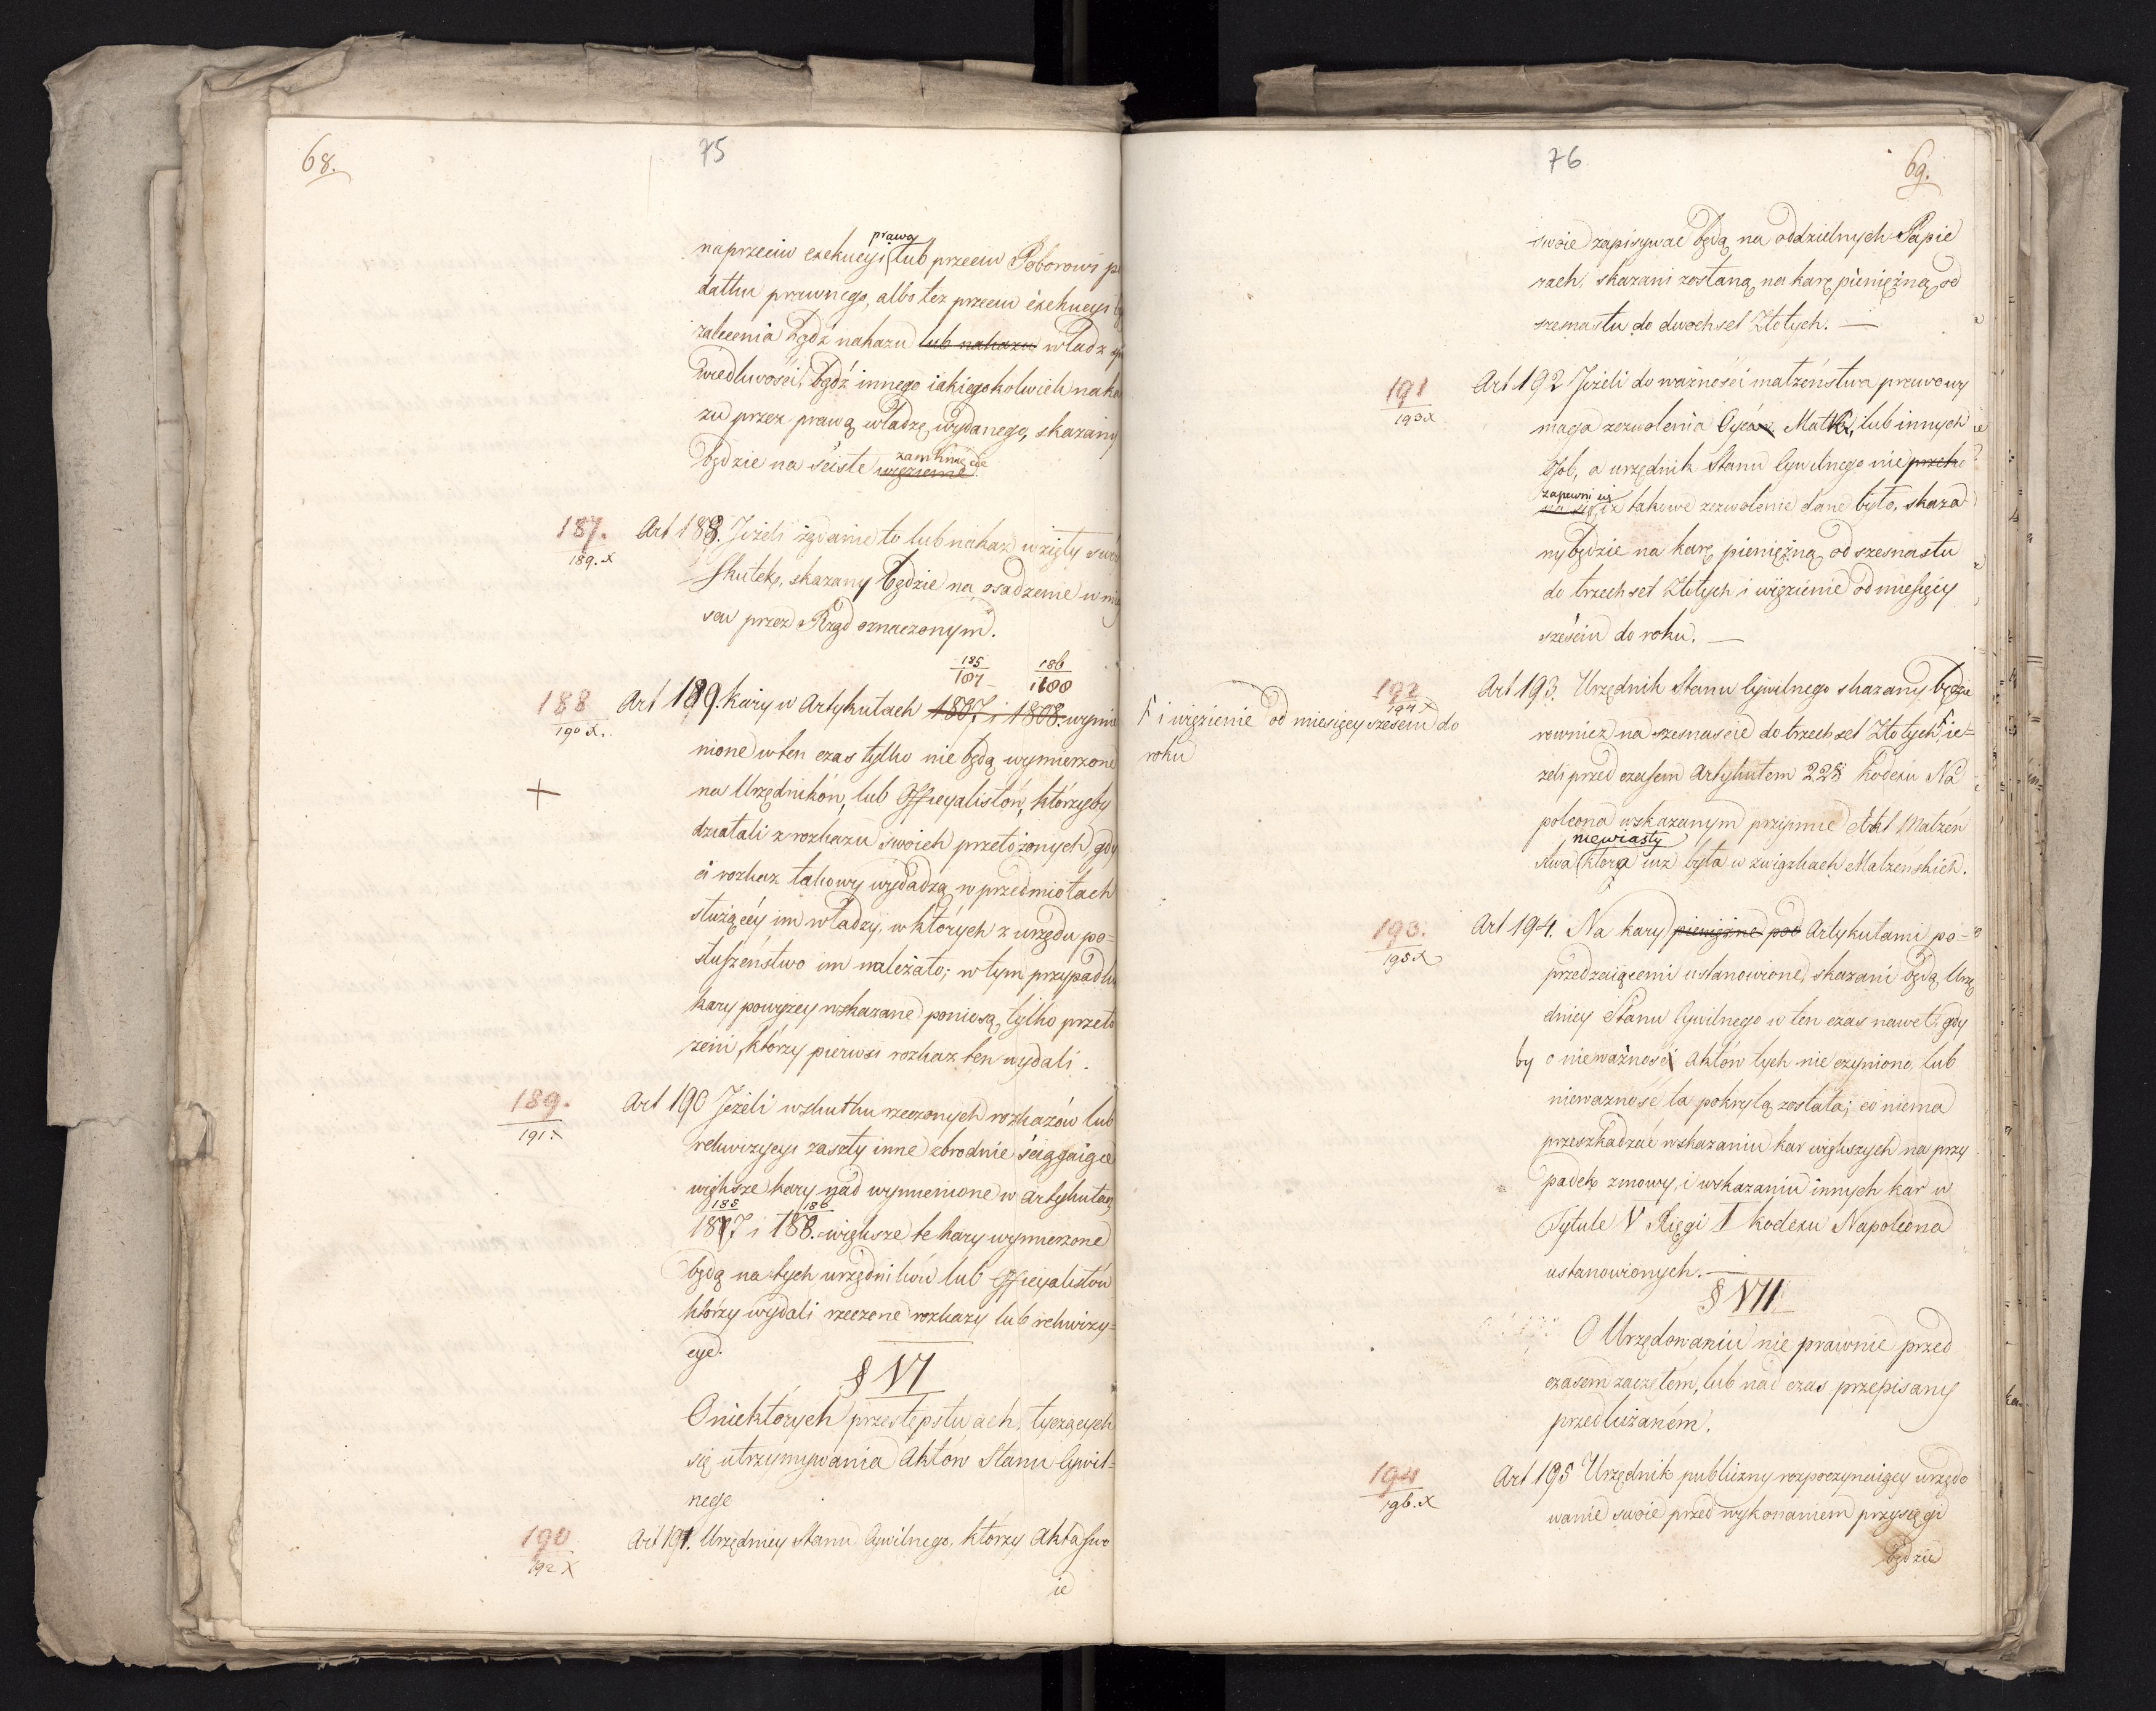 68.
75
naprzeciw exekucyi prawa lub przeciw Poborowi po
datku prawnego, albo też przeciw exekucyi bądź
zalecenia bądź nakazu lub nakazu władz spra
wiedliwości, bądź innego iakiegokolwiek naka
zu przez prawą władzę wydanego, skazany
będzie na ściste więzienie zamknięcie
187.
189. x
Art 188. Jeżeli żądanie to lub nakaz wzięły swóy
Skutek, skazany będzie na osadzenie w miey
scu przez Rząd oznaczonym.
185 186
187 i 188
188
190 x.
Art 189. Kary w Artykułach 1807. i 1808. wymie
nione w ten czas tylko nie będą wymierzone
na Urzędników, lub Officyalistów, którzyby
działali z rozkazu swoich przełożonych gdy
ci rozkaz takowy wydadzą w przedmiotach
służącéy im władzy, w których z urzędu po=
słuszeństwo im należało; w tym przypadku
kary powyżey wskazane poniosą tylko przeło
żeni, którzy pierwsi rozkaz ten wydali.
189.
191. x
Art 190 Jeżeli w skutku rzeczonych rozkazów lub
rekwizycyi zaszły inne zbrodnie ściągaiące
większe kary nad wymienione w Artykułach
185 186
187 i 188. większe te kary wymierzone
będą na tych urzędników lub Officyalistów
którzy wydali rzeczone rozkazy lub rekwizy=
cye.
§ VI
O niektórych przestępstwach, tyczących
się utrzymywania Aktów Stanu Cywil=
nego
190
192 x
Art 191. Urzędnicy Stanu Cywilnego, którzy Akta swo
ie
76
69.
swoie zapisywać będą na oddzielnych Papie
rach, skazani zostaną na karę pieniężną od
szesnastu do dwóchset Złotych. —
191
193 x
Art 192 Jeżeli do ważności małżeństwa prawo wy
maga zezwolenia Oyca, Matki, lub innych
Osób, a urzędnik Stanu Cywilnego nie przeko
na się zapewni się iż takowe zezwolenie dane było, skaza
ny będzie na karę pieniężną od szesnastu
do trzechset Złotych i więzienie od miesięcy
sześciu do roku. —
192
194 x
Art 193. Urzędnik Stanu Cywilnego skazany będzie
F i więzienie od miesięcy sześciu do
roku
rownież na szesnaście do trzechset Złotych F ie=
żeli przed czasem Artykułem 228 Kodexu Na
poleona wskazanym przyimie Akt Małżeń
stwa niewiasty która iuż była w związkach Małżeńskich.
193.
195 x
Art 194. Na kary pieniężne pod Artykułami po=
przedzaiącemi ustanowione, skazani będą Urzę
dnicy Stanu Cywilnego w ten czas nawet, gdy
by o nieważność Aktów tych nie czyniono, lub
nieważność ta pokrytą została; co niema
przeszkadzać wskazaniu kar większych na przy
padek zmowy, i wskazaniu innych kar w
Tytule V Xięgi I Kodexu Napoleona
ustanowionych. —
§ VII
O Urzędowaniu nie prawnie przed
czasem zaczętém, lub nad czas przepisany
przedłużaném.
194
196. x
Art 195 Urzędnik publiczny rozpoczynaiący urzędo
wanie swoie przed wykonaniem przysięgi
będzie